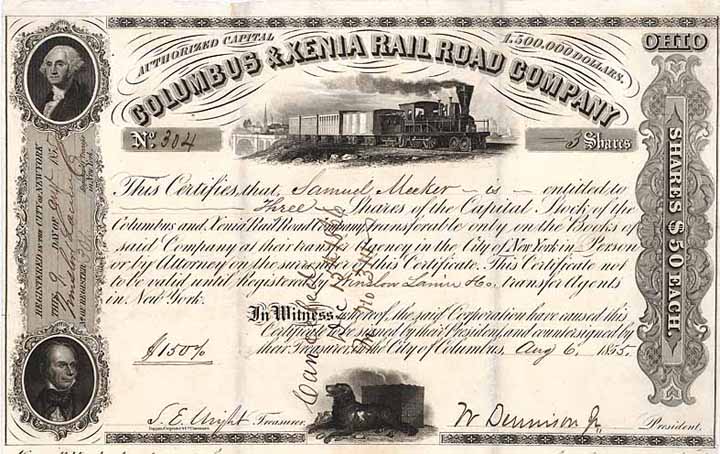 AUTHORIZED CAPITAL 1.500.000 DOLLARS.
COLUMBUS & XENIA RAIL ROAD COMPANY
OHIO
No. 304
3 Shares
This Certifies, that, Samuel Meeker is entitled to
Three Shares of the Capital Stock of the
Columbus and Xenia Rail Road Company, transferable only on the Books of
said Company at their transfer Agency in the City of New York in Person
or by Attorney on the surrender of this Certificate. This Certificate not
to be valid until Registered by Winslow Lanier & Co. transfer Agents
in New York.
In Witness whereof, the said Corporation have caused this
Certificate to be signed by their President, and countersigned by
their Treasurer, in the City of Columbus, Aug 6, 1855.
$150%
S. E. Wright Treasurer.
W Dennison Jr. President.
SHARES $50 EACH
REGISTERED IN THE CITY OF NEW YORK
THIS 9 DAY OF Augt 185
Winslow Lanier
Cancelled